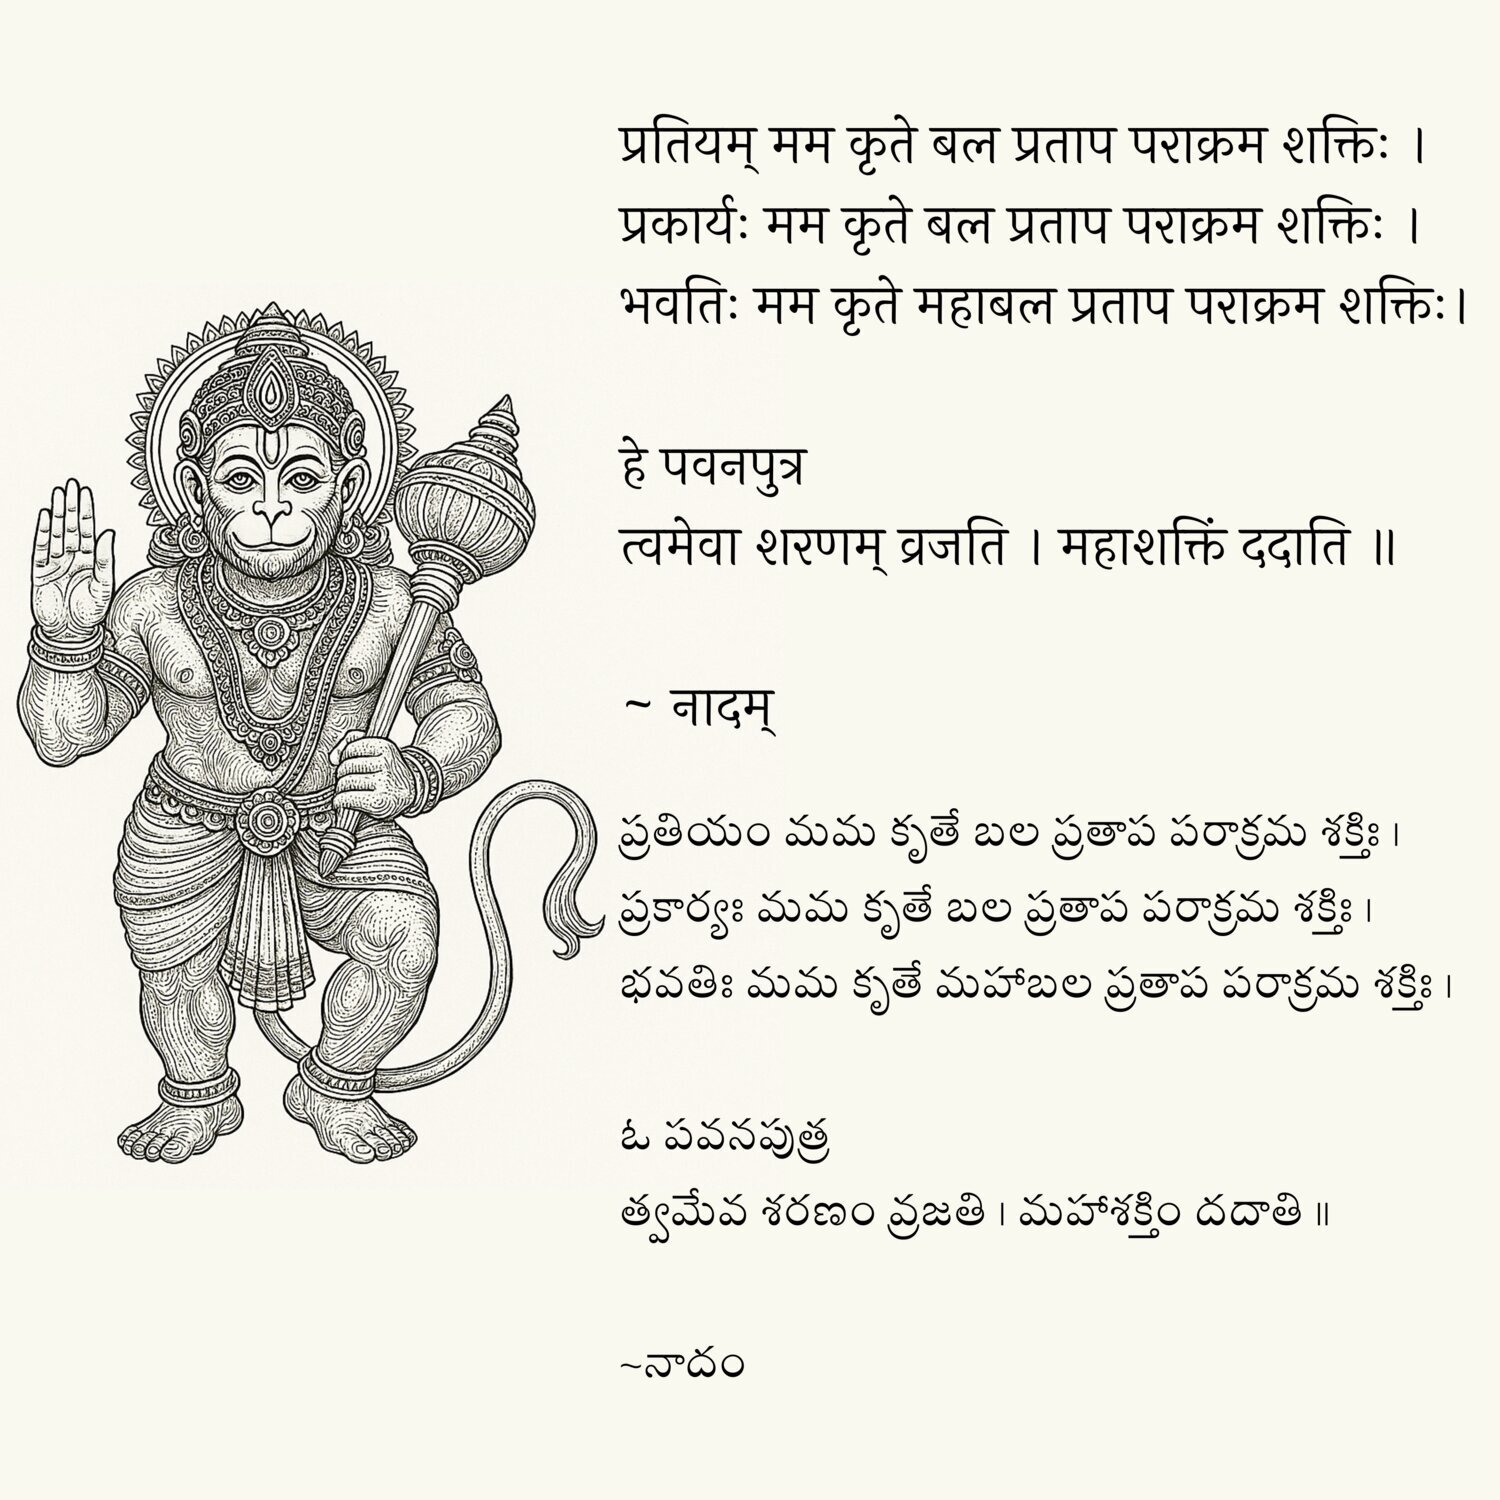 प्रतियम् मम कृते बल प्रताप पराक्रम शक्तिः ।
प्रकार्यः मम कृते बल प्रताप पराक्रम शक्तिः ।
भवतिः मम कृते महाबल प्रताप पराक्रम शक्तिः।
हे पवनपुत्र
त्वमेवा शरणम् व्रजति । महाशक्तिं ददाति ॥
~ नादम्
ప్రతియం మమ కృతే బల ప్రతాప పరాక్రమ శక్తిః ।
ప్రకార్యః మమ కృతే బల ప్రతాప పరాక్రమ శక్తిః ।
భవతిః మమ కృతే మహాబల ప్రతాప పరాక్రమ శక్తిః ।
ఓ పవనపుత్ర
త్వమేవ శరణం వ్రజతి । మహాశక్తిం దదాతి ॥
~నాదం